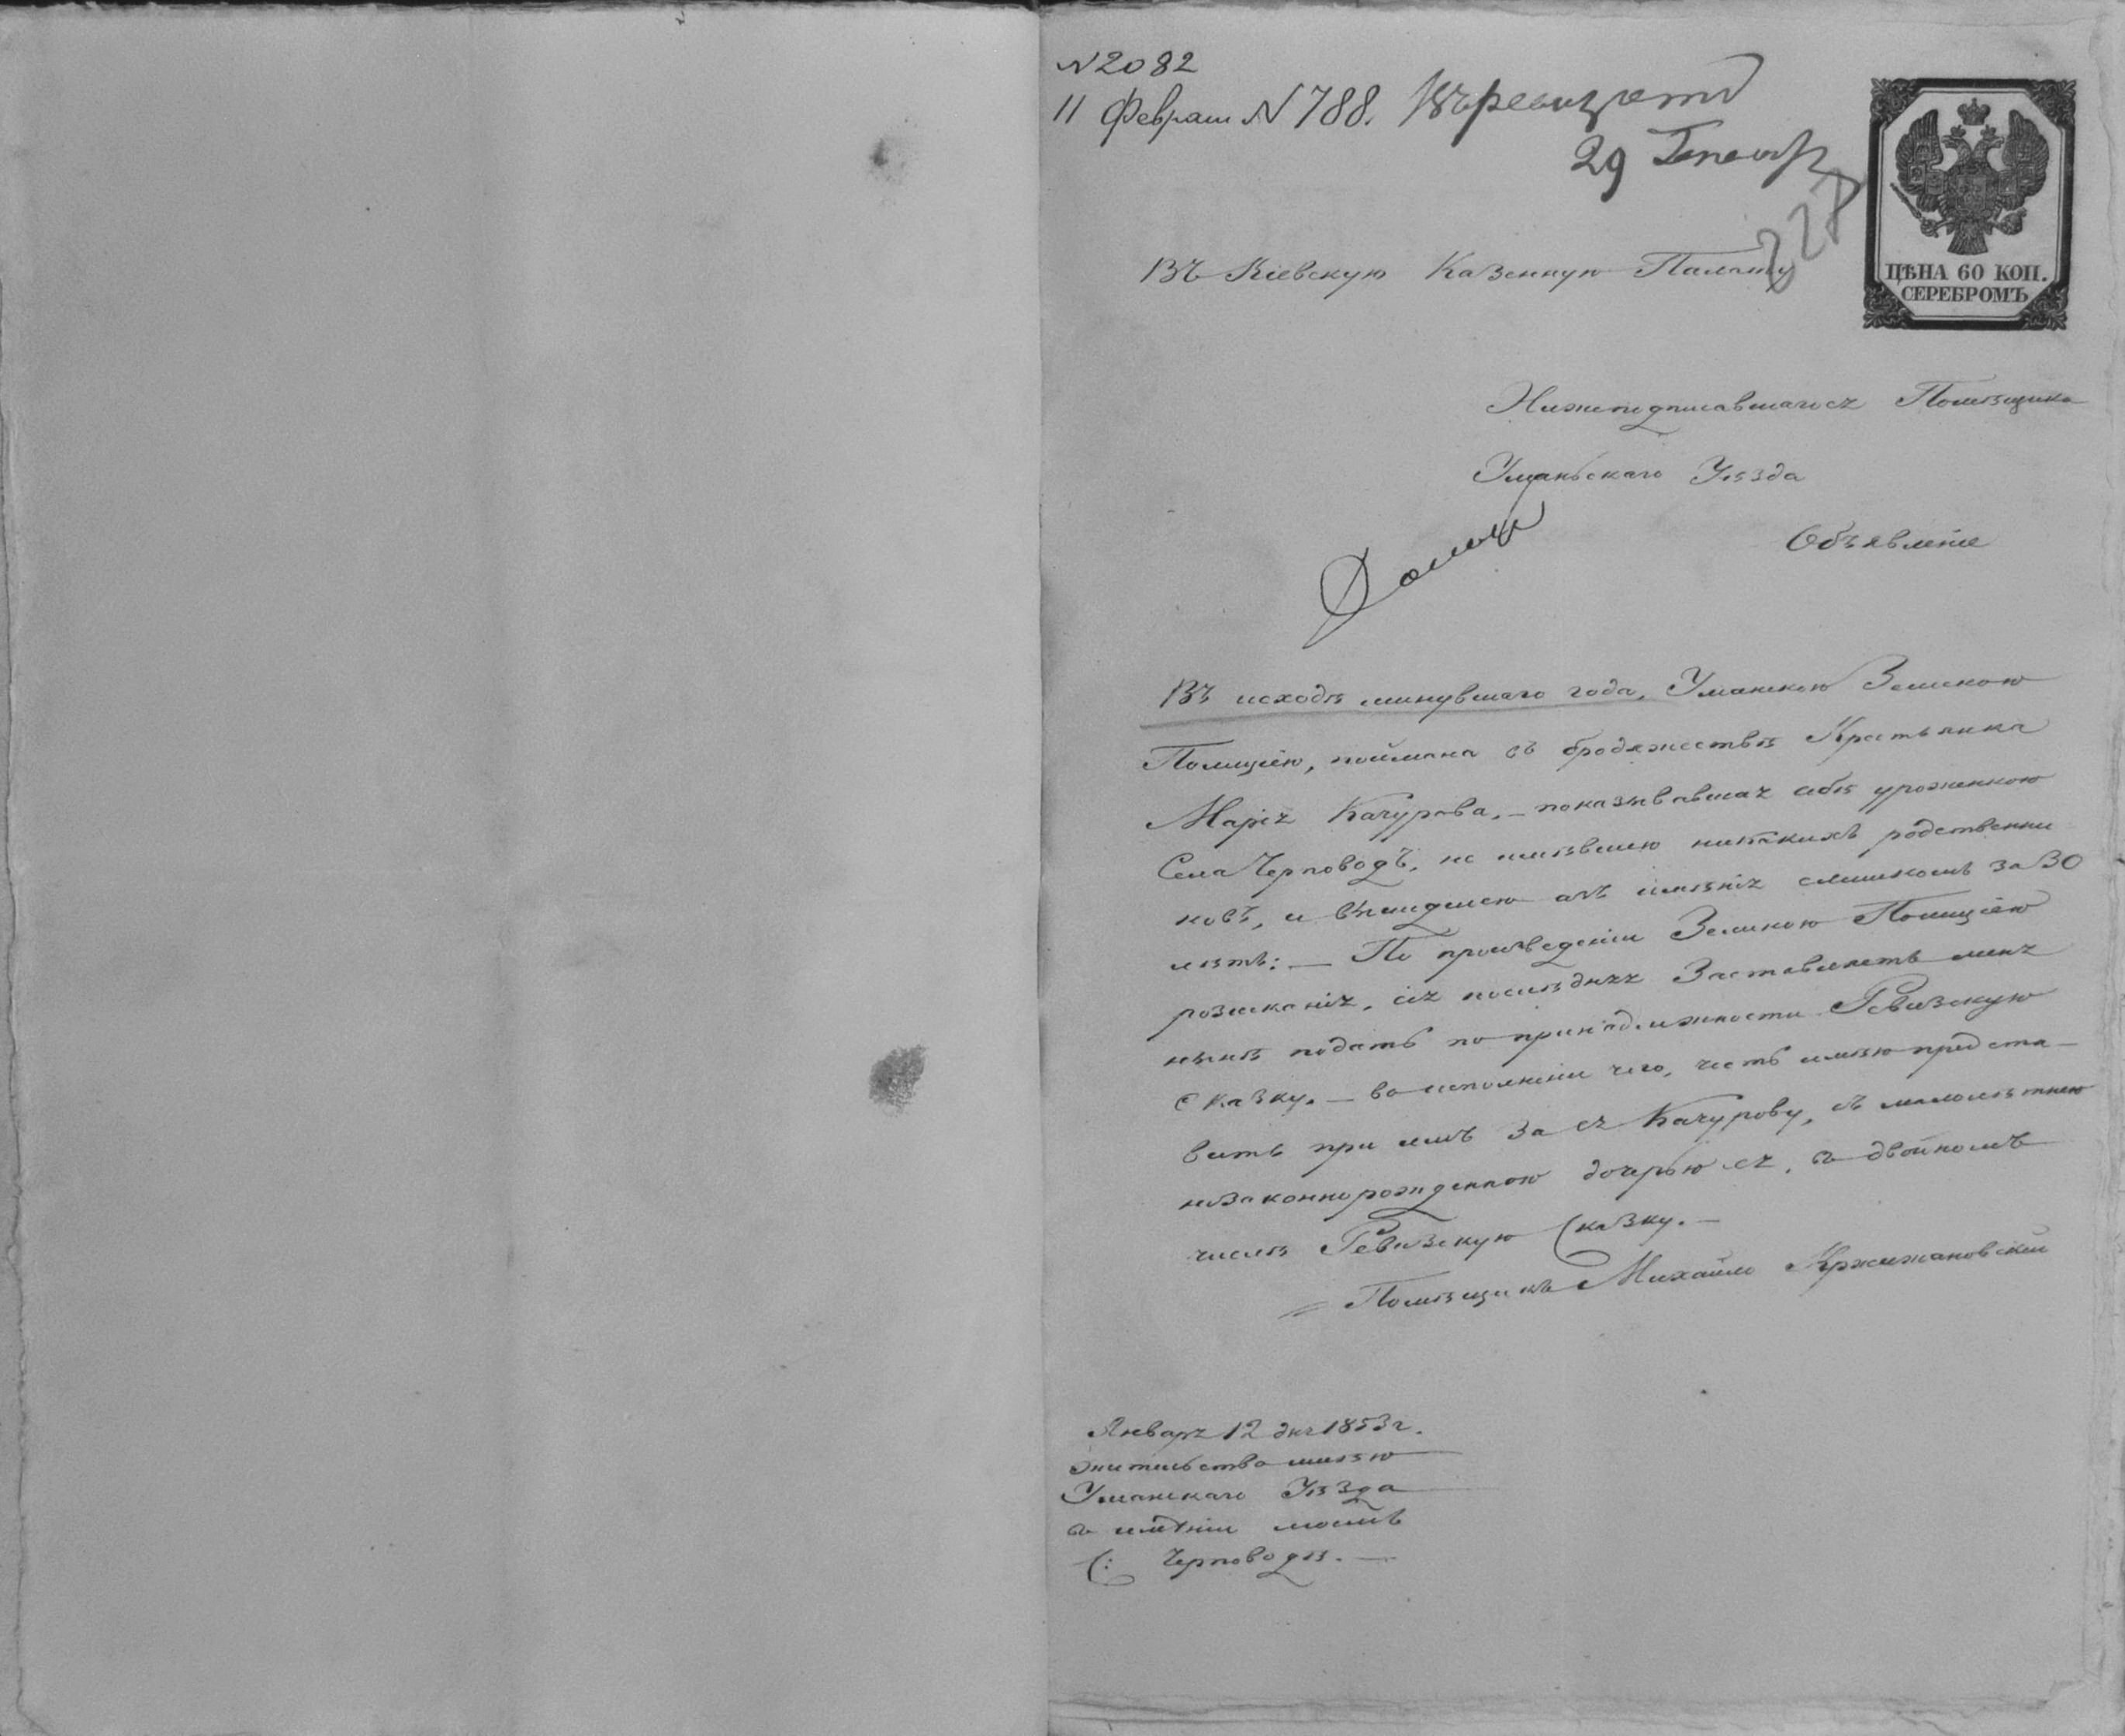 N 2082
11 Февраля N 788.
29 Генваря
227
ЦѢНА 60 КОП.
СЕРЕБРОМЪ
Въ Кіевскую Казенную Палату
Нижеподписавшагося Помѣщика
Уманьскаго Уѣзда
Объявленіе
Въ исходѣ минувшаго года, Уманскою Земскою
Полиціею, поймана въ бродяжествѣ Крестьянка
Марія Качурова, – показывавшая себя уроженкою
Села Черповодъ, не имѣвшею никакихъ родственни
ковъ, и вышедшею изъ имѣнія слишкомъ за 30
лѣтъ: – По произведеніи Земскою Полиціею
розысканія, сія послѣдняя Заставляетъ меня
нынѣ подать по принадлежности Ревизскую
Сказку. – во исполненіи чего, честь имѣю предста–
вить при имъ за ея Качурову, съ малолѣтнею
незаконнорожденною дочерью ея, въ двойномъ
числѣ Ревизскую Сказку. –
Помѣщикъ Михайло Кржижановскій
Января 12 дня 1853 г.
Жительство имѣю
Уманскаго Уѣзда
въ имѣніи моемъ
С: Черповодѣ. –